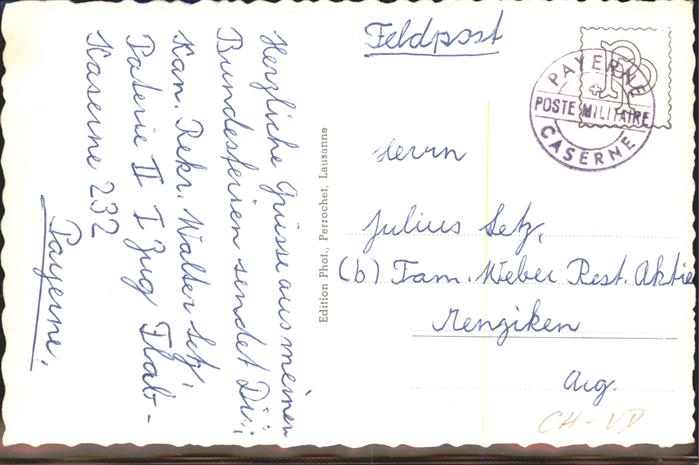 Herzliche Grüsse aus meinen
Bundesferien sendet Dir;
Kan. Rekr. Walter Setz,
Baterie II I Zug Flab-
Kaserne 232
Payerne.
Edition Phot., Perrochet, Lausanne
Feldpost
PAYERNE
POSTE MILITAIRE
CASERNE
PP
Herrn
Julius Setz,
(b) Fam. Weber Rest. Aktie
Menziken
Arg.
CH-VD